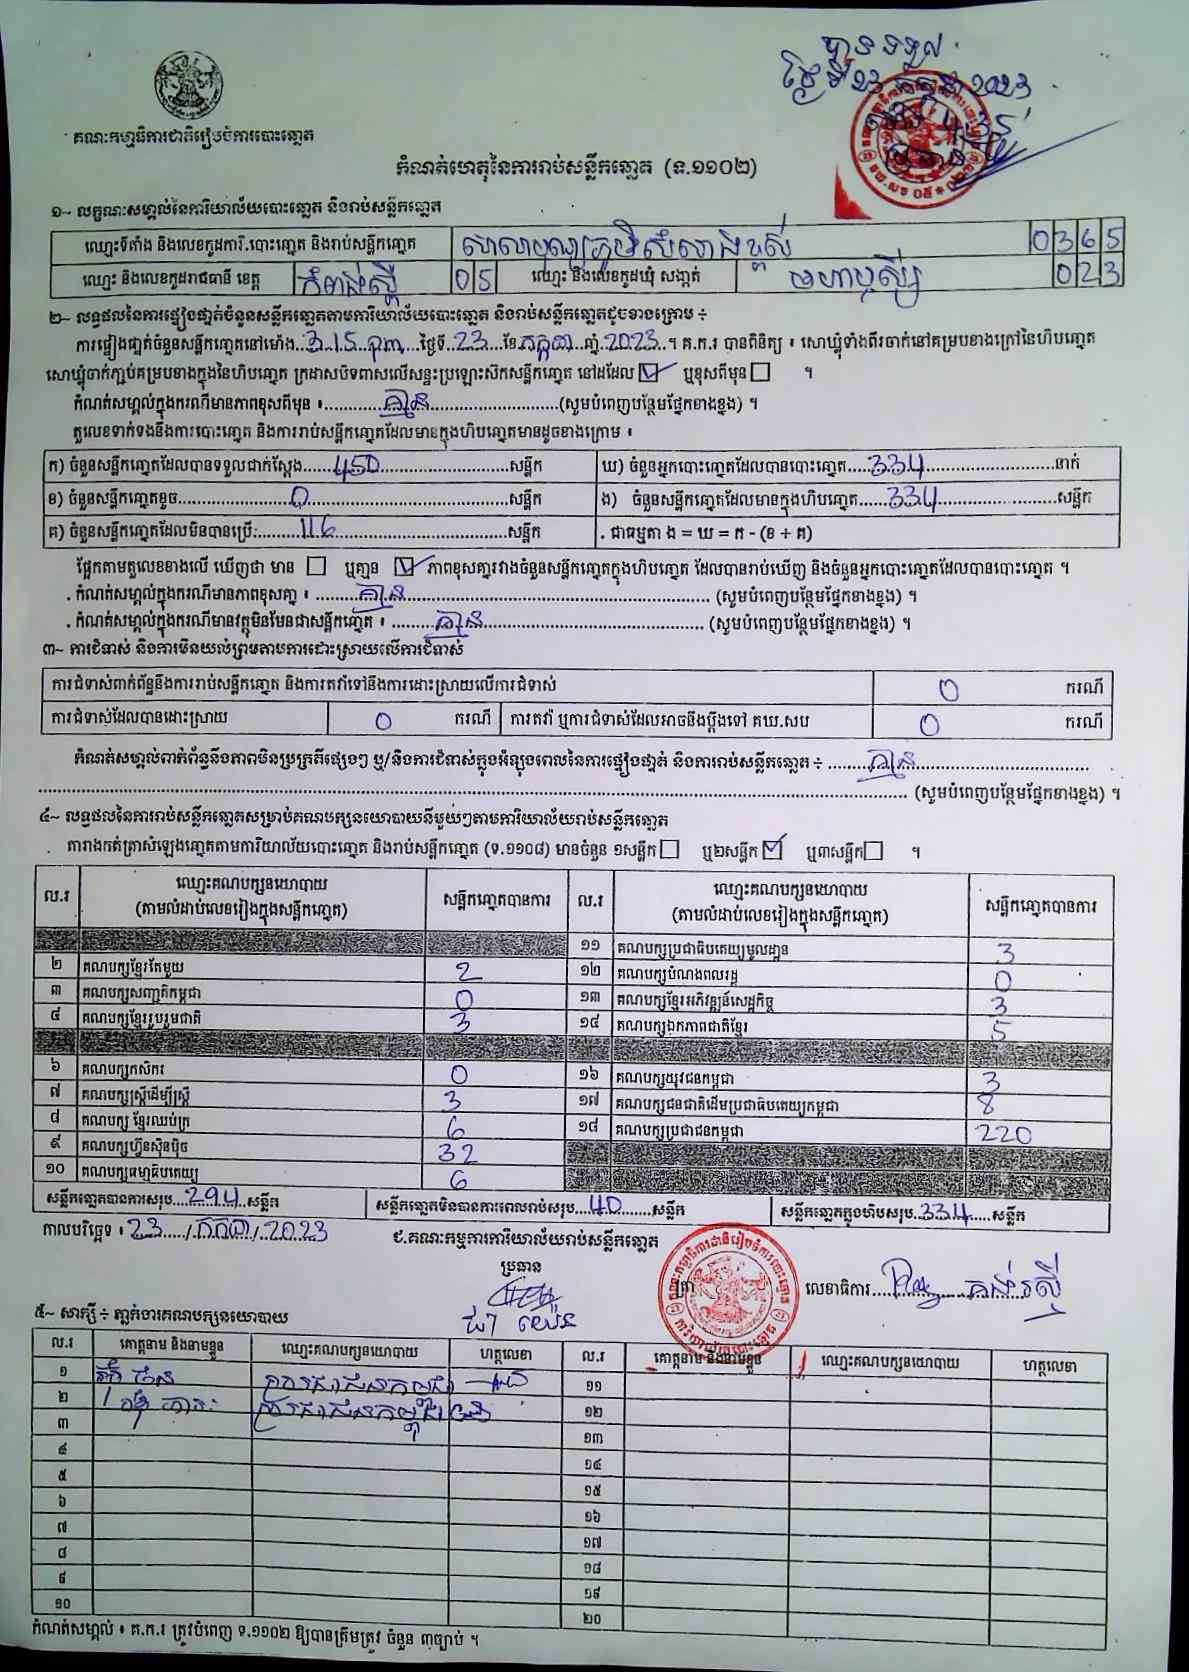 បានទទួល
ថ្ងៃទី23 កក្កដា 2023
គណៈកម្មាធិការជាតិរៀបចំការបោះឆ្នោត
កំណត់ហេតុនៃការរាប់សន្លឹកឆ្នោត (ទ.១១០២)
១~ លក្ខណៈសម្គាល់នៃការិយាល័យបោះឆ្នោត និងរាប់សន្លឹកឆ្នោត
ឈ្មោះទីតាំង និងលេខកូដការិ.បោះឆ្នោត និងរាប់សន្លឹកឆ្នោត សាលាបុណ្យភូមិសំរោងខ្ពស់ 0365
ឈ្មោះ និងលេខកូដរាជធានី ខេត្ត កំពង់ស្ពឺ 05 ឈ្មោះ និងលេខកូដឃុំ សង្កាត់ មហាឫស្សី 023
២~ លទ្ធផលនៃការផ្ទៀងផ្ទាត់ចំនួនសន្លឹកឆ្នោតតាមការិយាល័យបោះឆ្នោត និងរាប់សន្លឹកឆ្នោតដូចខាងក្រោម ÷
ការផ្ទៀងផ្ទាត់ចំនួនសន្លឹកឆ្នោតនៅម៉ោង..3:15 pm..ថ្ងៃទី..23..ខែ កក្កដា ឆ្នាំ.2023..។ គ.ក.រ បានពិនិត្យ ៖ សោឃ្លុំទាំងពីរចាក់នៅគម្របខាងក្រៅនៃហិបឆ្នោត
សោឃ្លុំចាក់ភ្ជាប់គម្របខាងក្នុងនៃហិបឆ្នោត ក្រដាសបិទពាសលើសន្ទះប្រឡោះស៊កសន្លឹកឆ្នោត នៅដដែល ☑ ឬខុសពីមុន ☐ ។
កំណត់សម្គាល់ក្នុងករណីមានភាពខុសពីមុន ៖ គ្មាន (សូមបំពេញបន្ថែមផ្នែកខាងខ្នង) ។
តួលេខទាក់ទងនឹងការបោះឆ្នោត និងការរាប់សន្លឹកឆ្នោតដែលមានក្នុងហិបឆ្នោតមានដូចខាងក្រោម ៖
ក) ចំនួនសន្លឹកឆ្នោតដែលបានទទួលជាក់ស្តែង 450 សន្លឹក ឃ) ចំនួនអ្នកបោះឆ្នោតដែលបានបោះឆ្នោត 334 នាក់
ខ) ចំនួនសន្លឹកឆ្នោតខូច 0 សន្លឹក ង) ចំនួនសន្លឹកឆ្នោតដែលមានក្នុងហិបឆ្នោត 334 សន្លឹក
គ) ចំនួនសន្លឹកឆ្នោតដែលមិនបានប្រើ: 116 សន្លឹក . ជាធម្មតា ង = ឃ = ក - (ខ + គ)
ផ្អែកតាមតួលេខខាងលើ ឃើញថា មាន ☐ ឬគ្មាន ☑ ភាពខុសគ្នារវាងចំនួនសន្លឹកឆ្នោតក្នុងហិបឆ្នោត ដែលបានរាប់ឃើញ និងចំនួនអ្នកបោះឆ្នោតដែលបានបោះឆ្នោត ។
. កំណត់សម្គាល់ក្នុងករណីមានភាពខុសគ្នា ៖ គ្មាន (សូមបំពេញបន្ថែមផ្នែកខាងខ្នង) ។
. កំណត់សម្គាល់ក្នុងករណីមានវត្ថុមិនមែនជាសន្លឹកឆ្នោត ៖ គ្មាន (សូមបំពេញបន្ថែមផ្នែកខាងខ្នង) ។
៣~ ការជំទាស់ និងការមិនយល់ព្រមតាមការដោះស្រាយលើការជំទាស់
ការជំទាស់ពាក់ព័ន្ធនឹងការរាប់សន្លឹកឆ្នោត និងការតវ៉ាទៅនឹងការដោះស្រាយលើការជំទាស់ 0 ករណី
ការជំទាស់ដែលបានដោះស្រាយ 0 ករណី ការតវ៉ា ឬការជំទាស់ដែលអាចនឹងប្តឹងទៅ គឃ.សប 0 ករណី
កំណត់សម្គាល់ពាក់ព័ន្ធនឹងភាពមិនប្រក្រតីផ្សេងៗ ឬ/និងការជំទាស់ក្នុងអំឡុងពេលនៃការផ្ទៀងផ្ទាត់ និងការរាប់សន្លឹកឆ្នោត ÷ គ្មាន
(សូមបំពេញបន្ថែមផ្នែកខាងខ្នង) ។
៤~ លទ្ធផលនៃការរាប់សន្លឹកឆ្នោតសម្រាប់គណបក្សនយោបាយនីមួយៗតាមការិយាល័យរាប់សន្លឹកឆ្នោត
តារាងកត់ត្រាសំឡេងឆ្នោតតាមការិយាល័យបោះឆ្នោត និងរាប់សន្លឹកឆ្នោត (ទ.១១០៨) មានចំនួន ១សន្លឹក ☐ ឬ២សន្លឹក ☑ ឬ៣សន្លឹក ☐ ។
ល.រ ឈ្មោះគណបក្សនយោបាយ (តាមលំដាប់លេខរៀងក្នុងសន្លឹកឆ្នោត) សន្លឹកឆ្នោតបានការ ល.រ ឈ្មោះគណបក្សនយោបាយ (តាមលំដាប់លេខរៀងក្នុងសន្លឹកឆ្នោត) សន្លឹកឆ្នោតបានការ
១១ គណបក្សប្រជាធិបតេយ្យមូលដ្ឋាន 3
២ គណបក្សខ្មែរតែមួយ 2 ១២ គណបក្សបំណងពលរដ្ឋ 0
៣ គណបក្សសញ្ជាតិកម្ពុជា 0 ១៣ គណបក្សខ្មែរអភិវឌ្ឍន៍សេដ្ឋកិច្ច 3
៤ គណបក្សខ្មែររួបរួមជាតិ 3 ១៤ គណបក្សឯកភាពជាតិខ្មែរ 5
៦ គណបក្សកសិករ 0 ១៦ គណបក្សយុវជនកម្ពុជា 3
៧ គណបក្សស្ត្រីដើម្បីស្ត្រី 3 ១៧ គណបក្សជនជាតិដើមប្រជាធិបតេយ្យកម្ពុជា 8
៨ គណបក្ស ខ្មែរឈប់ក្រ 6 ១៨ គណបក្សប្រជាជនកម្ពុជា 220
៩ គណបក្សហ៊្វុនស៊ិនប៉ិច 32
១០ គណបក្សធម្មាធិបតេយ្យ 6
សន្លឹកឆ្នោតបានការសរុប 294 សន្លឹក សន្លឹកឆ្នោតមិនបានការពេលរាប់សរុប 40 សន្លឹក សន្លឹកឆ្នោតក្នុងហិបសរុប 334 សន្លឹក
កាលបរិច្ឆេទ ៖ 23 / កក្កដា / 2023 ជ.គណៈកម្មការការិយាល័យរាប់សន្លឹកឆ្នោត
ប្រធាន លេខាធិការ
៥~ សាក្សី ÷ ភ្នាក់ងារគណបក្សនយោបាយ
ល.រ គោត្តនាម និងនាមខ្លួន ឈ្មោះគណបក្សនយោបាយ ហត្ថលេខា ល.រ គោត្តនាម និងនាមខ្លួន ឈ្មោះគណបក្សនយោបាយ ហត្ថលេខា
១ ប្រជាជនកម្ពុជា ១១
២ ប្រជាជនកម្ពុជា ១២
៣ ១៣
៤ ១៤
៥ ១៥
៦ ១៦
៧ ១៧
៨ ១៨
៩ ១៩
១០ ២០
កំណត់សម្គាល់ ៖ គ.ក.រ ត្រូវបំពេញ ទ.១១០២ ឱ្យបានត្រឹមត្រូវ ចំនួន ៣ច្បាប់ ។